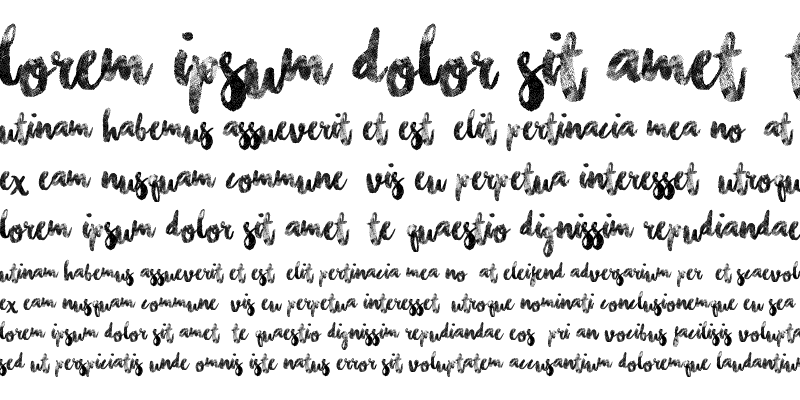 lorem ipsum dolor sit amet t
utinam habemus assueverit et est elit pertinacia mea no at
ex eam nusquam commune vis eu perpetua interesset utroqu
lorem ipsum dolor sit amet te quaestio dignissim repudiandae
utinam habemus assueverit et est elit pertinacia mea no at eleifend adversarium per et scaevol
ex eam nusquam commune vis eu perpetua interesset utroque nominati conclusionemque eu sea
lorem ipsum dolor sit amet te quaestio dignissim repudiandae eos pri an vocibus facilisis volupta
sed ut perspiciatis unde omnis iste natus error sit voluptatem accusantium doloremque laudantium